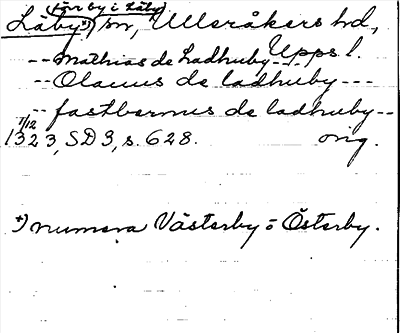 (för by i Läby)
Läby*) sn, Ulleråkers hd,
Upps l.
-- Mathias de Ladhuby --
-- Olauus de ladhuby ---
-- fastbernus de ladhuby --
7/12
1323, SD 3, s. 628. orig.
*) numera Västerby o Österby.